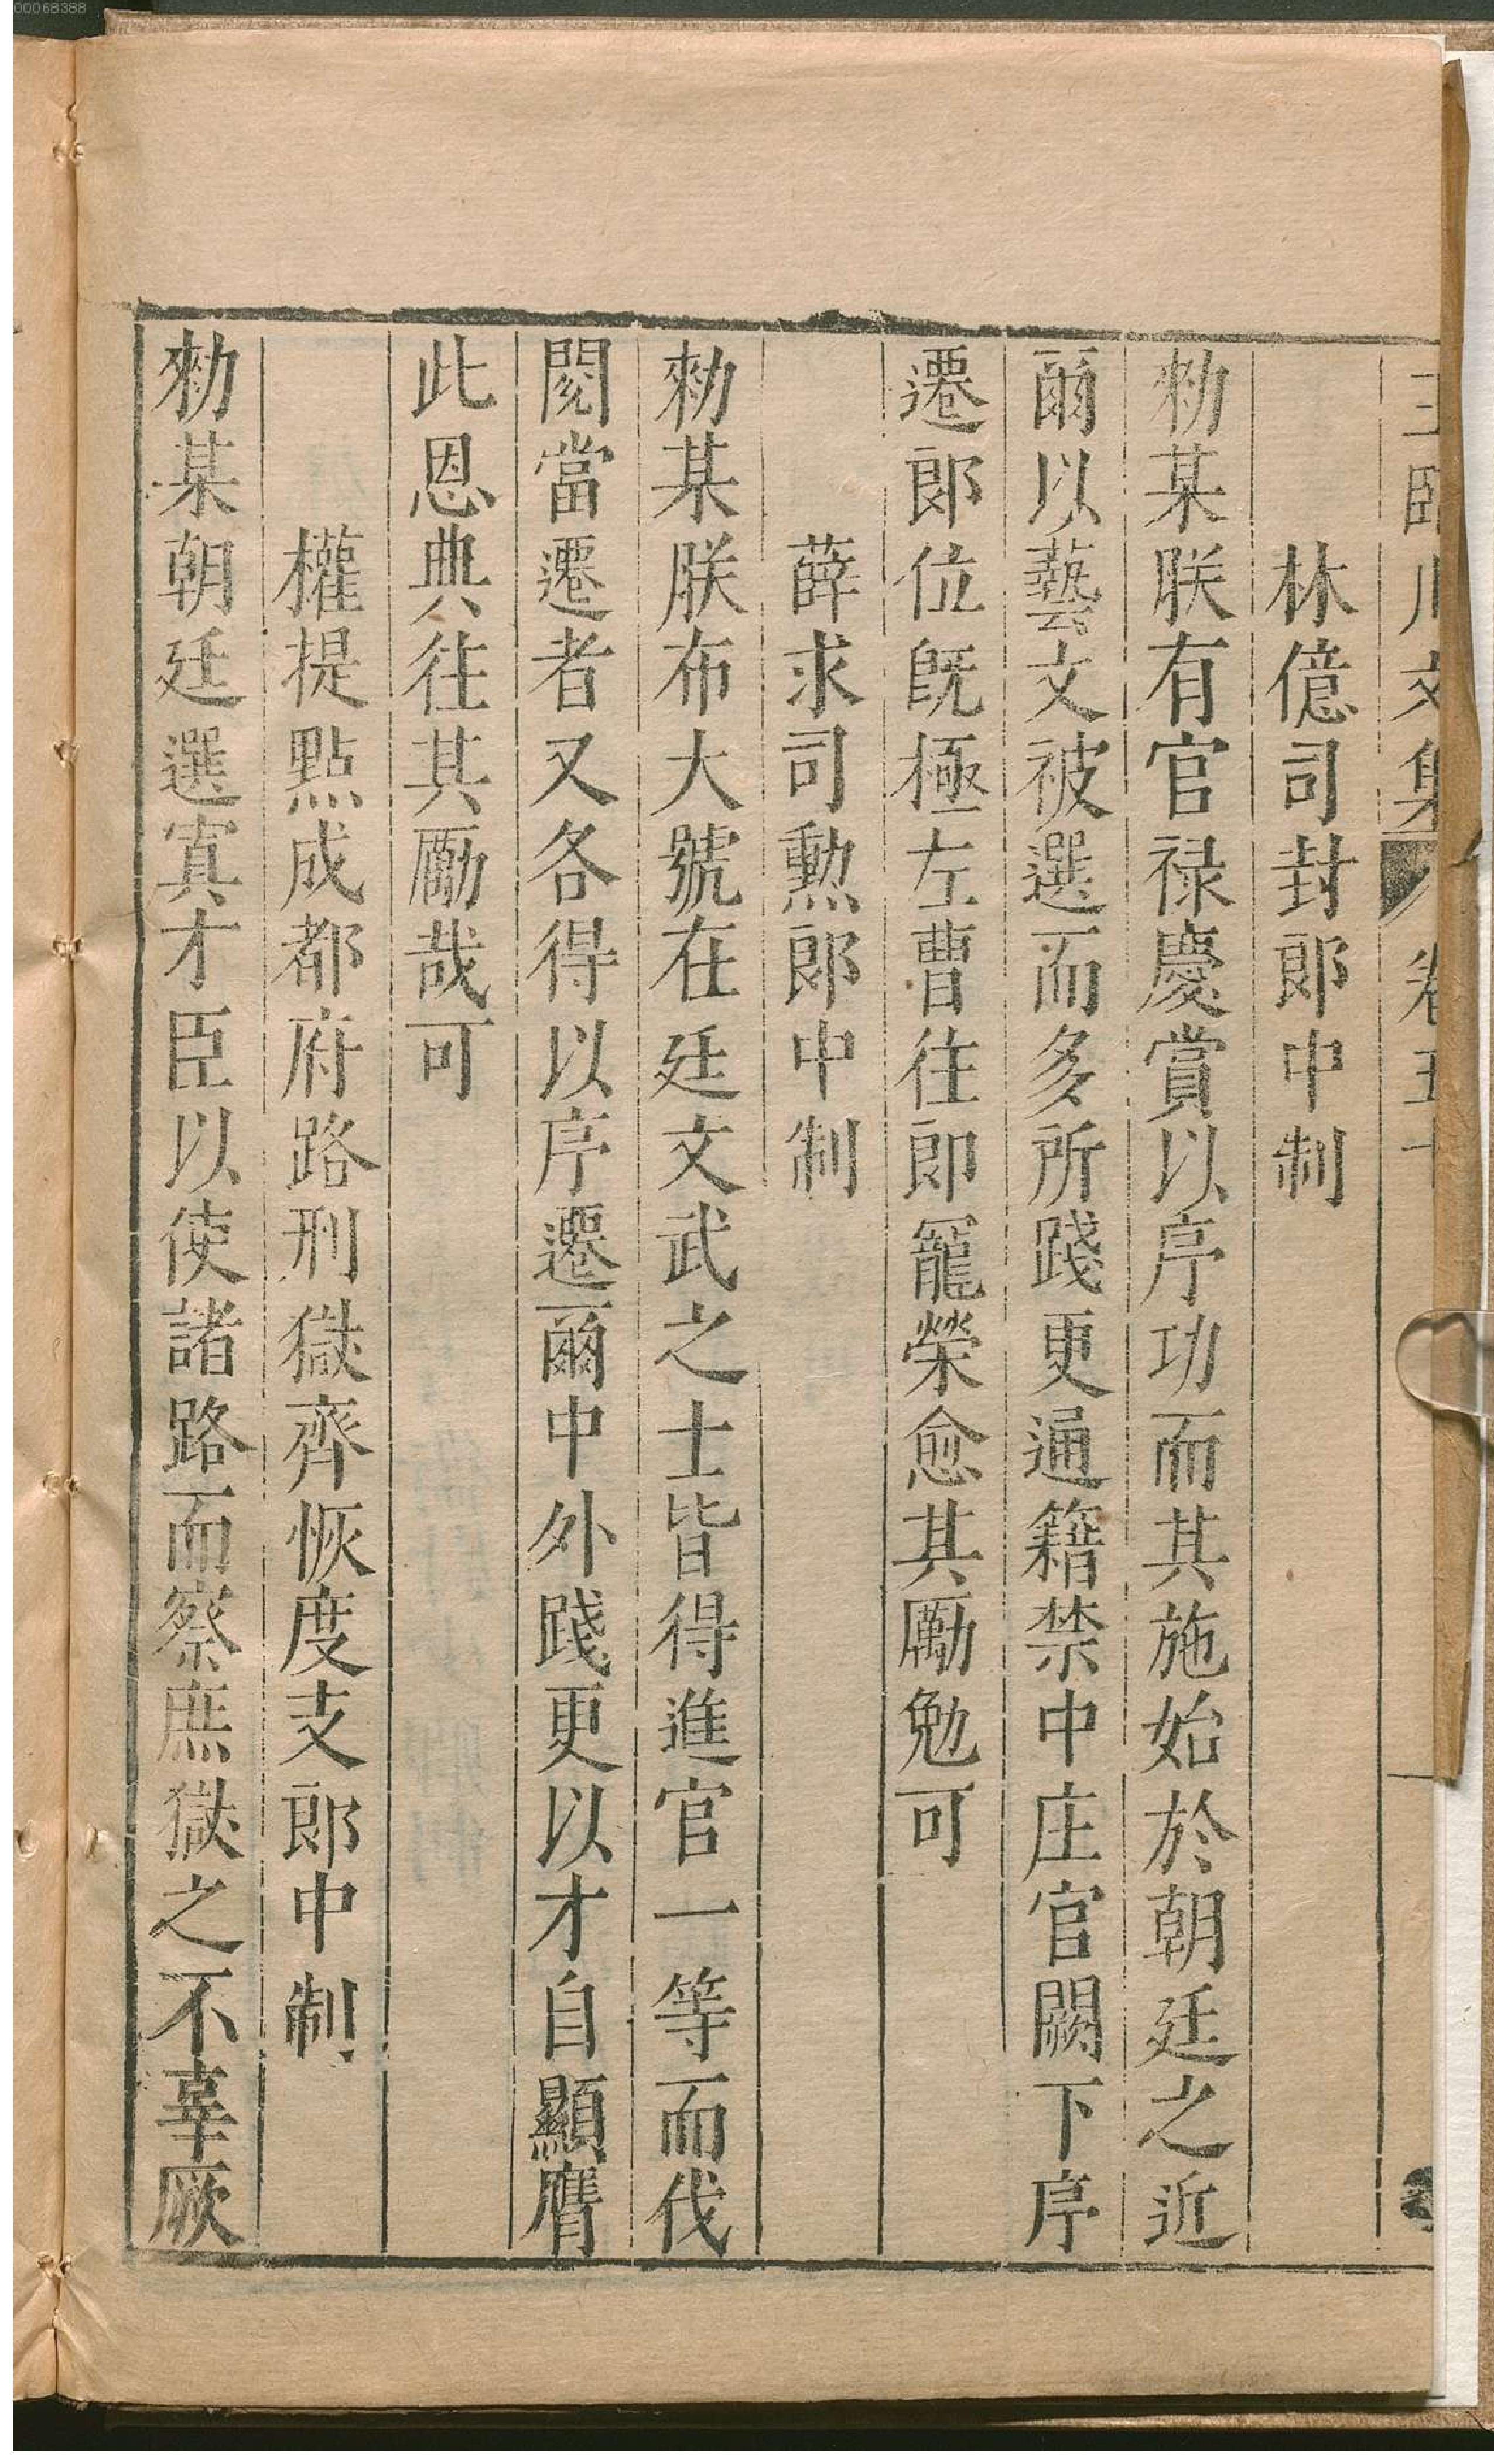 00068388
林億司封郎中制
勑某朕有官禄慶賞以序功而其施始於朝廷之近
爾以藝文被選而多所踐更通籍禁中庄官闕下序
遷郎位既極左曹往即寵榮愈其勵勉可
薛求司勲郎中制
勑某朕布大號在廷文武之士皆得進官一等而伐
閱當遷者又各得以序遷爾中外踐更以才自顯膺
此恩典往其勵哉可
權提點成都府路刑獄齊恢度支郎中制
勑某朝廷選寘才臣以使諸路而察庶獄之不辜厥